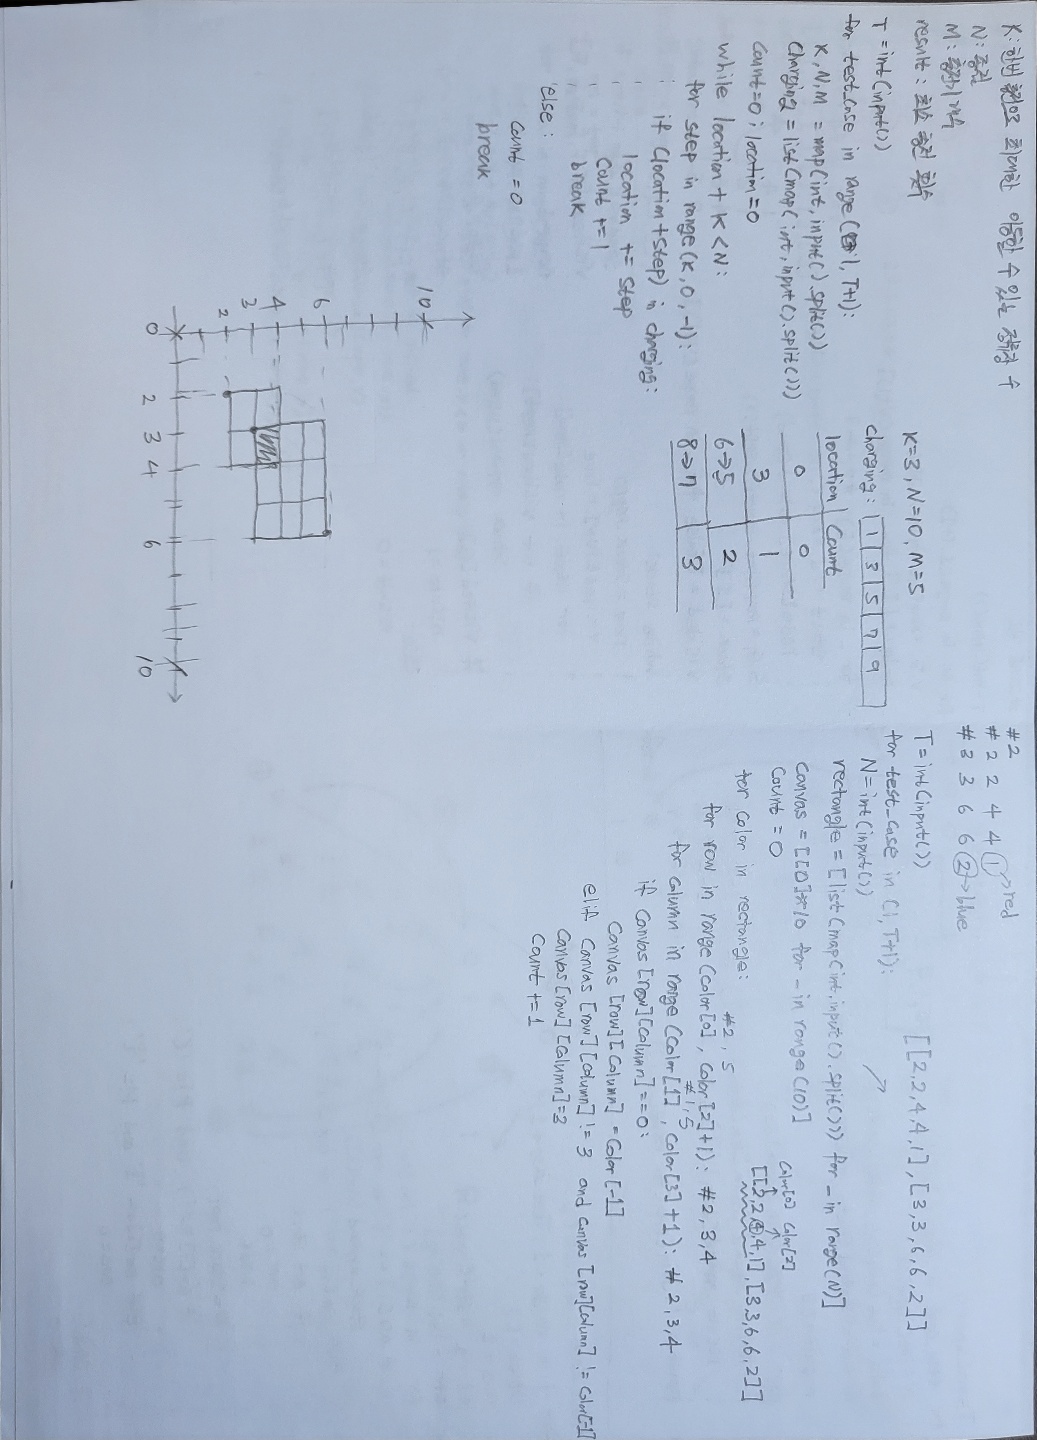 K: 한번 충전으로 최대한 이동할 수 있는 정류장 수
N: 종점
M: 충전기 개수
result: 최소 충전 횟수
T = int(input())
for test_case in range(1, T+1):
K, N, M = map(int, input().split())
Charging = list(map(int, input().split()))
Count=0; location=0
while location + K < N:
for step in range(K, 0, -1):
if (location+step) in charging:
location += step
Count += 1
break
else:
Count = 0
break
K=3, N=10, M=5
charging: 1 3 5 7 9
location Count
0 0
3 1
6→5 2
8→7 3
10
6
4
3
2
0 2 3 4 6 10
#2
# 2 2 4 4 1 → red
# 3 3 6 6 2 → blue
T = int(input())
[[2,2,4,4,1],[3,3,6,6,2]]
for test_case in (1, T+1):
N = int(input())
rectangle = [list(map(int, input().split())) for _ in range(N)]
Canvas = [[0]*10 for _ in range(10)]
Count = 0
Color[0] Color[2]
[[2,2,4,4,1],[3,3,6,6,2]]
for Color in rectangle:
#2, 5
for row in range(Color[0], Color[2]+1): #2,3,4
#1, 5
for Column in range(Color[1], Color[3]+1): # 2,3,4
if Canvas[row][Column]==0:
Canvas[row][Column] = Color[-1]
elif Canvas[row][Column] != 3 and Canvas[row][Column] != Color[-1]
Canvas[row][Column]=3
Count += 1